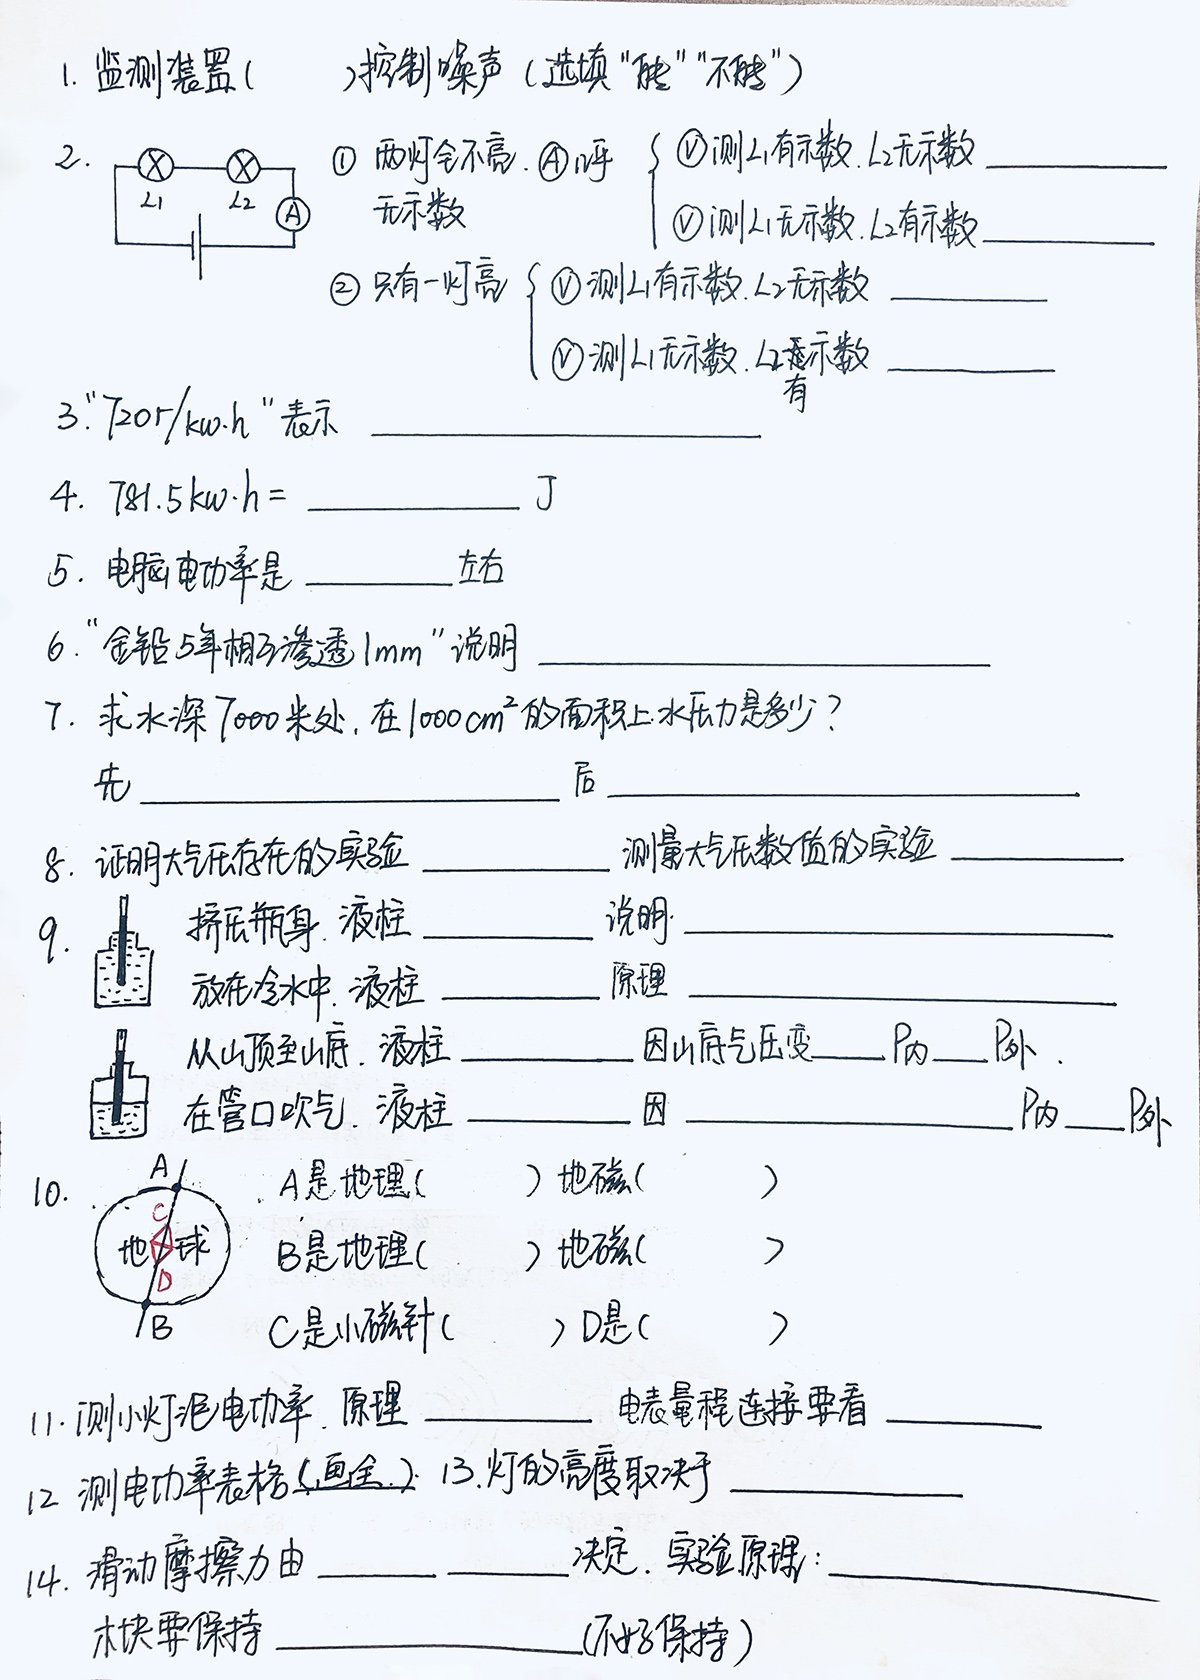 1. 监测装置(      )控制噪声(选填"能""不能")
2. L1 L2 A ① 两灯全不亮. Ⓐ几乎无示数 Ⓥ测L1有示数. L2无示数 ______
Ⓥ测L1无示数. L2有示数 ______
② 只有一灯亮 Ⓥ测L1有示数. L2无示数 ______
Ⓥ测L1无示数. L2有示数 ______
3. "720r/kw·h"表示 ______
4. 781.5kw·h= ______ J
5. 电脑电功率是 ______ 左右
6. "金铅5年相互渗透1mm"说明 ______
7. 求水深7000米处, 在1000cm²的面积上水压力是多少?
先 ______ 后 ______
8. 证明大气压存在的实验 ______ 测量大气压数值的实验 ______
9. 挤压瓶身. 液柱 ______ 说明. ______
放在冷水中. 液柱 ______ 原理 ______
从山顶至山底. 液柱 ______ 因山底气压变____P内____P外.
在管口吹气. 液柱 ______ 因 ______ P内____P外
10. A C 地球 D B A是地理(      ) 地磁(      )
B是地理(      ) 地磁(      )
C是小磁针(      ) D是(      )
11. 测小灯泡电功率. 原理 ______ 电表量程连接要看 ______
12 测电功率表格(画全.). 13. 灯的亮度取决于 ______
14. 滑动摩擦力由 ______ ______ 决定. 实验原理: ______
木块要保持 ______ (不好保持)